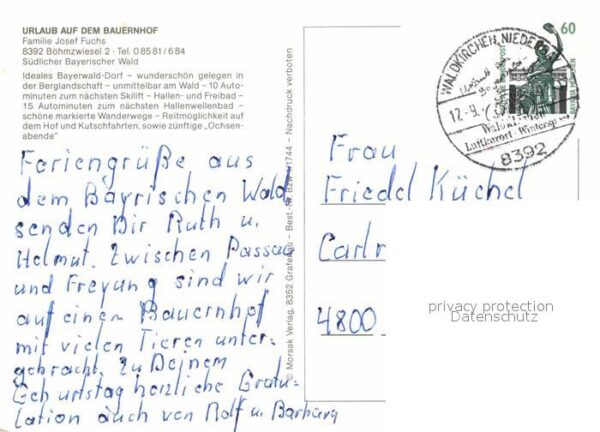 URLAUB AUF DEM BAUERNHOF
Familie Josef Fuchs
8392 Böhmzwiesel 2 · Tel. 0 85 81 / 6 84
Südlicher Bayerischer Wald
Ideales Bayerwald-Dorf – wunderschön gelegen in
der Berglandschaft – unmittelbar am Wald – 10 Auto-
minuten zum nächsten Skilift – Hallen- und Freibad –
15 Autominuten zum nächsten Hallenwellenbad –
schöne markierte Wanderwege – Reitmöglichkeit auf
dem Hof und Kutschfahrten, sowie zünftige „Ochsen-
abende"
Feriengrüße aus
dem Bayrischen Wald
senden Dir Ruth u.
Helmut. Zwischen Passau
und Freyung sind wir
auf einem Bauernhof
mit vielen Tieren unter-
gebracht. Zu Deinem
Geburtstag herzliche Gratu-
lation auch von Rolf u. Barbara
© Morsak Verlag, 8352 Grafenau – Best.-Nr. 1744 – Nachdruck verboten
60
WALDKIRCHEN, NIEDERB
12.-9.
Luftkurort · Wintersp
8392
Frau
Friedel Küchel
Carlr
4800
privacy protection
Datenschutz